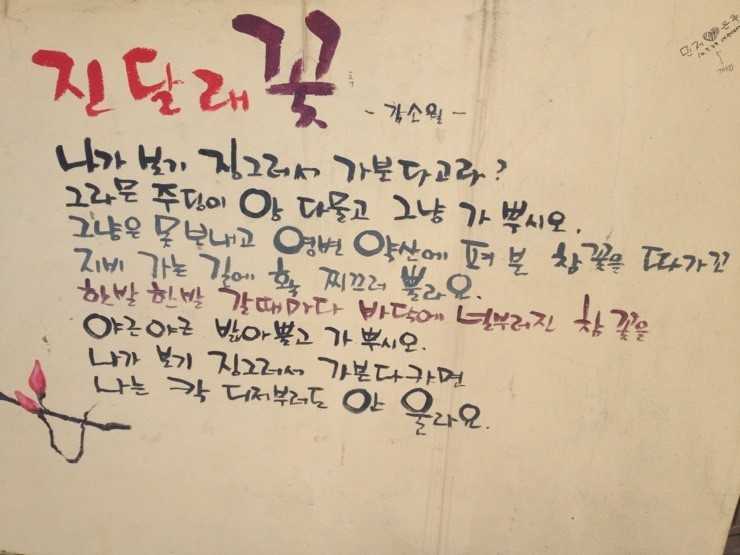 진달래꽃
- 김소월 -
나가 보기 징그러서 가분다고라?
그라믄 주딩이 앙 다물고 그냥 가 뿌시오.
그냥은 못 보내고 영변 약산에 펴 분 참꽃을 따가꼬
지비 가는 길에 훅 찌끄러 뿔라요.
한발 한발 갈때마다 바닥에 널부러진 참꽃을
야근야근 밟아뿔고 가 뿌시오.
나가 보기 징그러서 가분다카면
나는 칵 디져부러도 안 울라요.